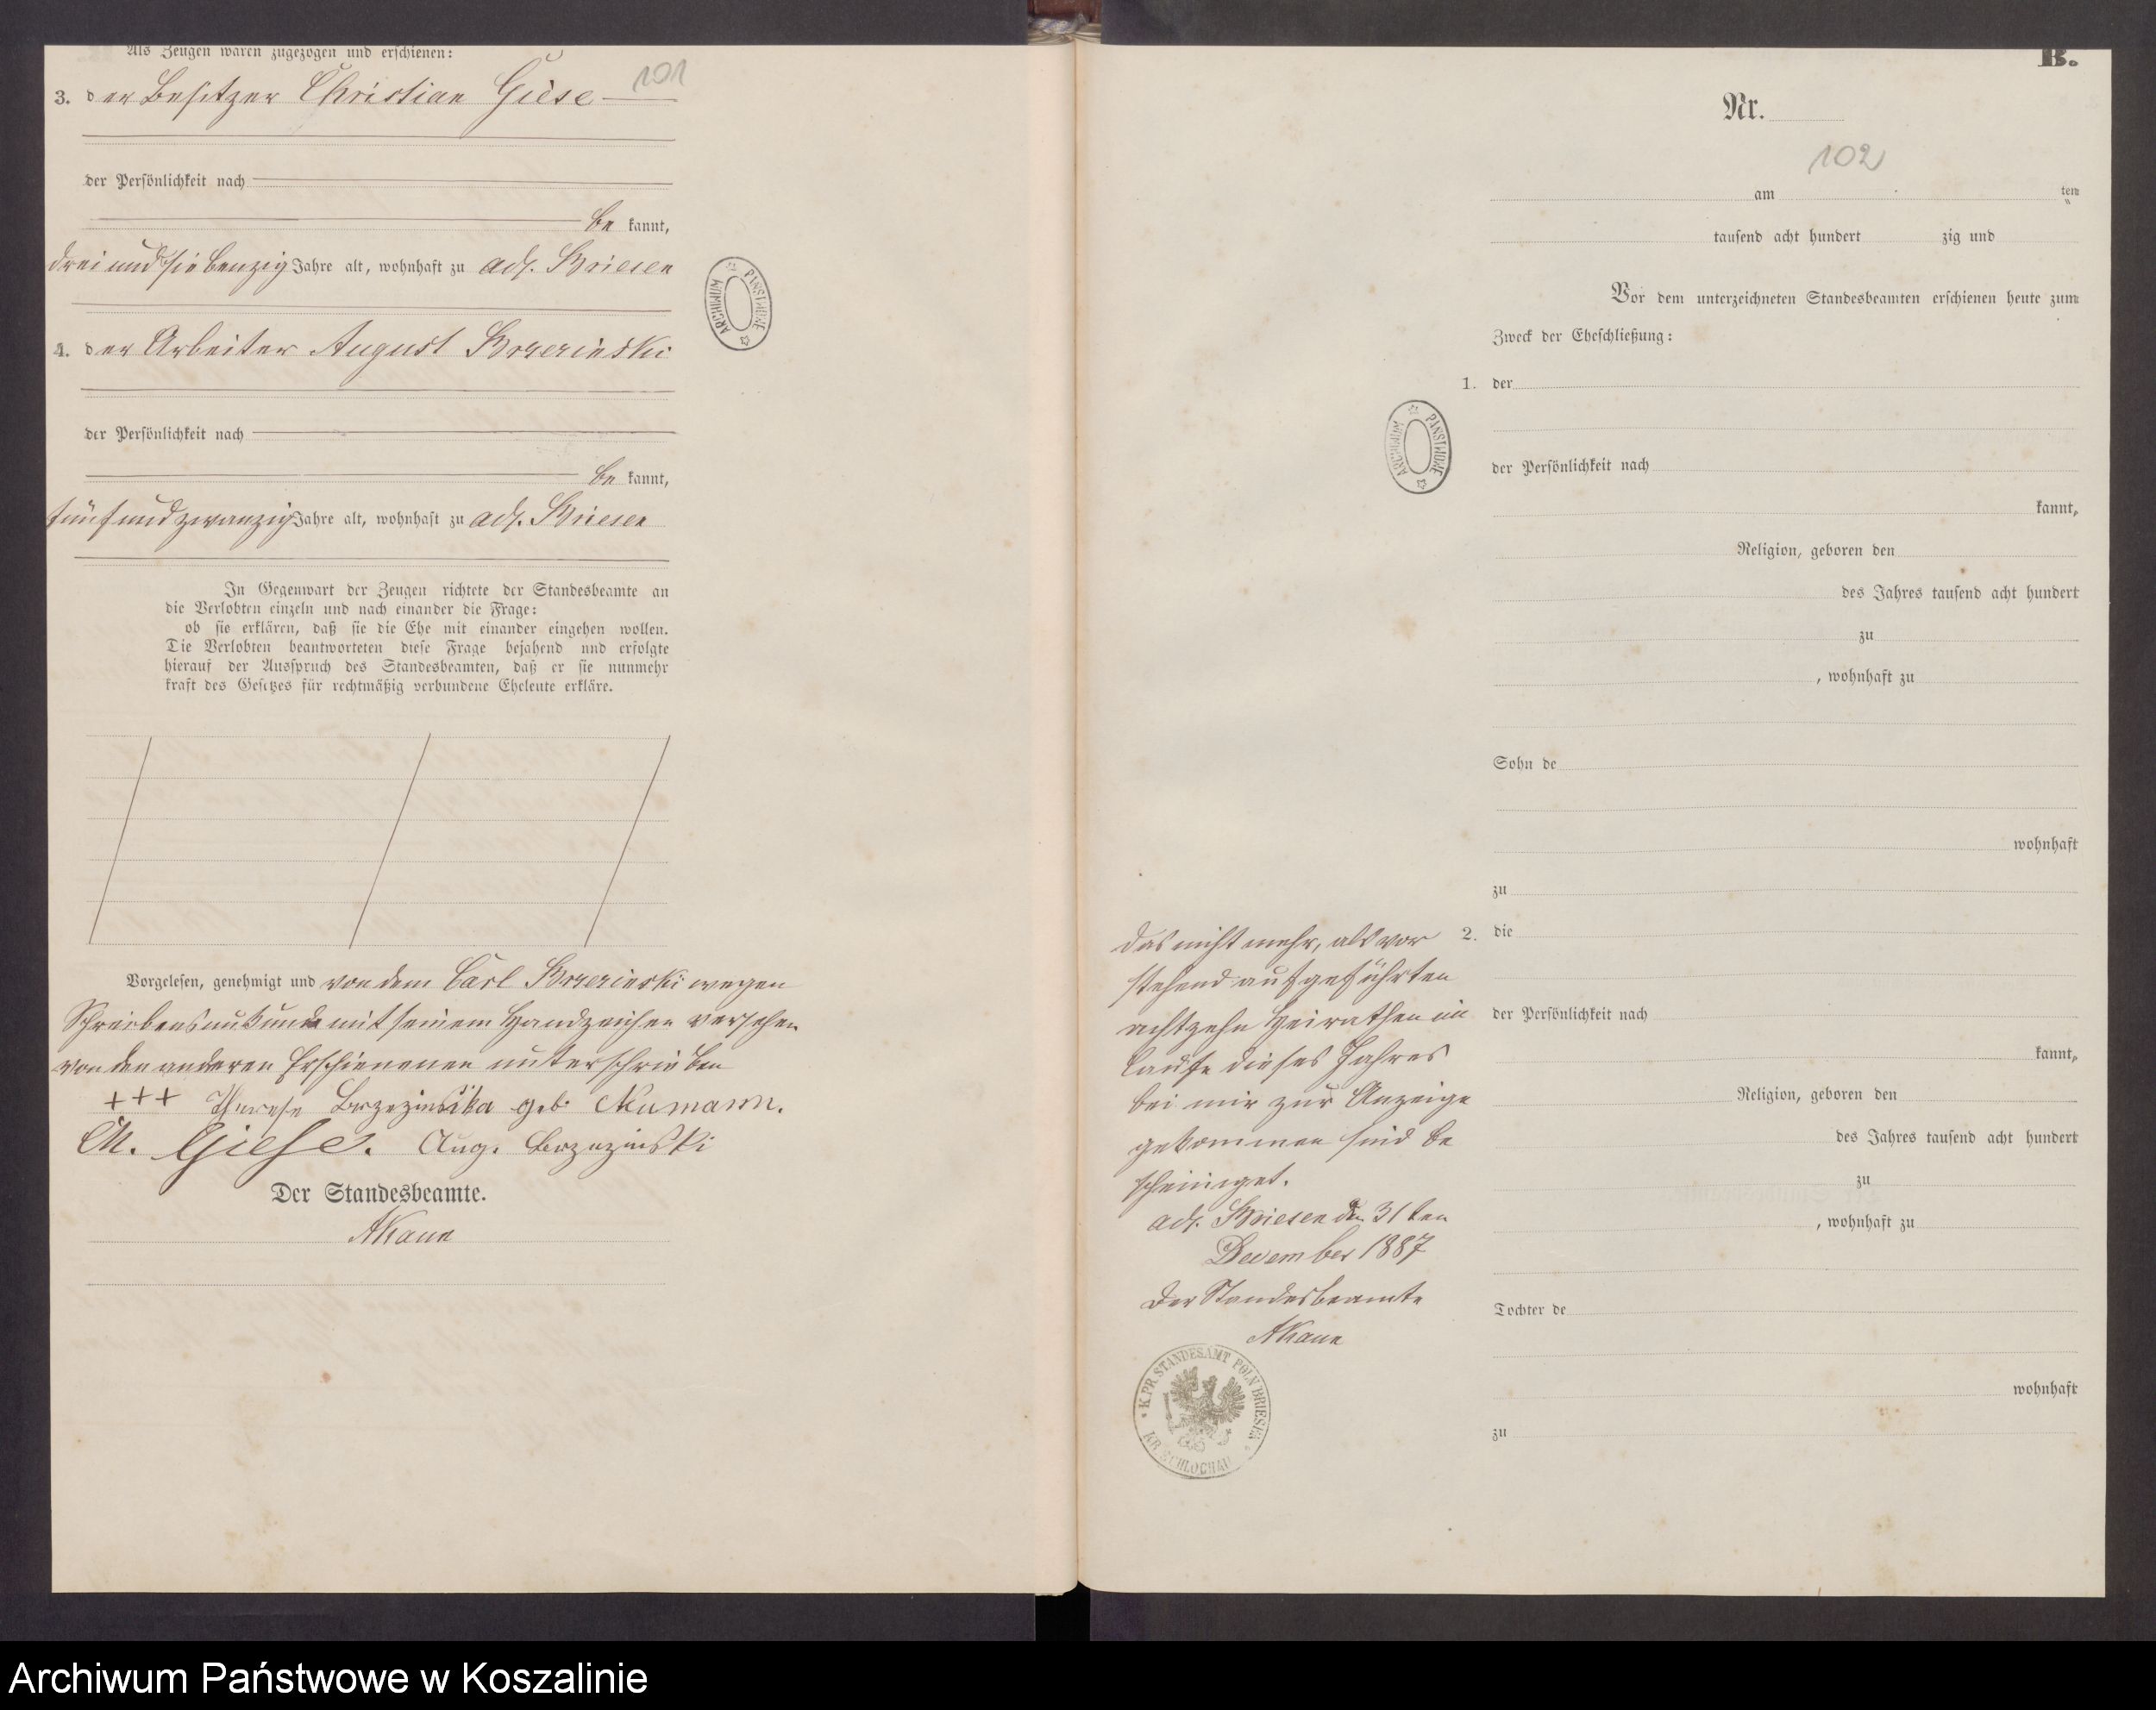 Als Zeugen waren zugezogen und erschienen:
101
3. der Besitzer Christian Giese
der Persönlichkeit nach
be kannt,
dreiundsiebenzig Jahre alt, wohnhaft zu adl. Briesen
4. der Arbeiter August Brzezinski
der Persönlichkeit nach
be kannt,
fünfundzwanzig Jahre alt, wohnhaft zu adl. Briesen
In Gegenwart der Zeugen richtete der Standesbeamte an
die Verlobten einzeln und nach einander die Frage:
ob sie erklären, daß sie die Ehe mit einander eingehen wollen.
Die Verlobten beantworteten diese Frage bejahend und erfolgte
hierauf der Ausspruch des Standesbeamten, daß er sie nunmehr
kraft des Gesetzes für rechtmäßig verbundene Eheleute erkläre.
Vorgelesen, genehmigt und von dem Carl Brzezinski wegen
Schreibensunkunde mit seinem Handzeichen versehen
von den anderen Erschienenen unterschrieben
+++ Therese Brzezinska geb. Numann.
Ch. Giese. Aug. Brzezinski
Der Standesbeamte.
AKaun
ARCHIWUM PAŃSTWOWE
B.
Nr.
102
am ten
tausend acht hundert zig und
Vor dem unterzeichneten Standesbeamten erschienen heute zum
Zweck der Eheschließung:
1. der
der Persönlichkeit nach
kannt,
Religion, geboren den
des Jahres tausend acht hundert
zu
, wohnhaft zu
Sohn de
wohnhaft
zu
2. die
der Persönlichkeit nach
kannt,
Religion, geboren den
des Jahres tausend acht hundert
zu
, wohnhaft zu
Tochter de
wohnhaft
zu
ARCHIWUM PAŃSTWOWE
Das nicht mehr, als vor
stehend aufgeführten
achtzehn Heirathen im
Laufe dieses Jahres
bei mir zur Anzeige
gekommen sind be
scheiniget.
adl. Briesen den 31ten
December 1887
Der Standesbeamte
AKaun
K. PR. STANDESAMT POLN BRIESEN
KR. SCHLOCHAU
Archiwum Państwowe w Koszalinie